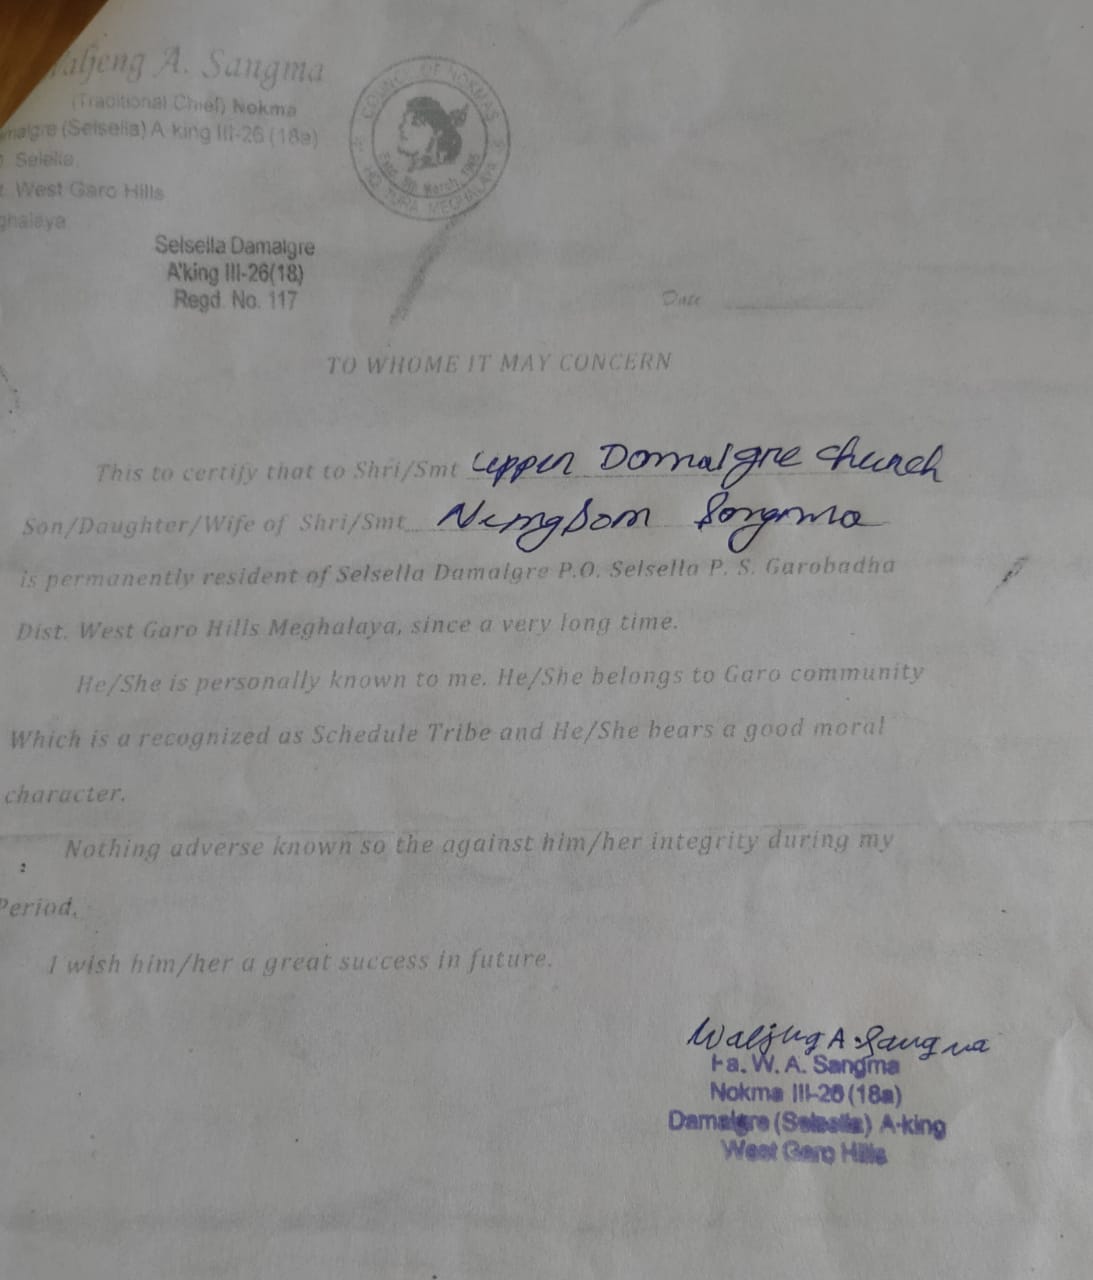 aljeng A. Sangma
(Traditional Chief) Nokma
malgre (Selsella) A·king III-26 (18a)
Selella,
t. West Garo Hills
ghalaya
COUNCIL OF NOKMAS
HQ. TURA MEGHALAYA
Selsella Damalgre
A'king III-26(18)
Regd. No. 117
Date
TO WHOME IT MAY CONCERN
This to certify that to Shri/Smt Upper Domalgre Church
Son/Daughter/Wife of Shri/Smt Sangma
is permanently resident of Selsella Damalgre P.O. Selsella P. S. Garobadha
Dist. West Garo Hills Meghalaya, since a very long time.
He/She is personally known to me. He/She belongs to Garo community
Which is a recognized as Schedule Tribe and He/She bears a good moral
character.
Nothing adverse known so the against him/her integrity during my
Period.
I wish him/her a great success in future.
Waljeng A Sangma
W. A. Sangma
Nokma III-26 (18a)
Damalgre (Selsella) A-king
West Garo Hills